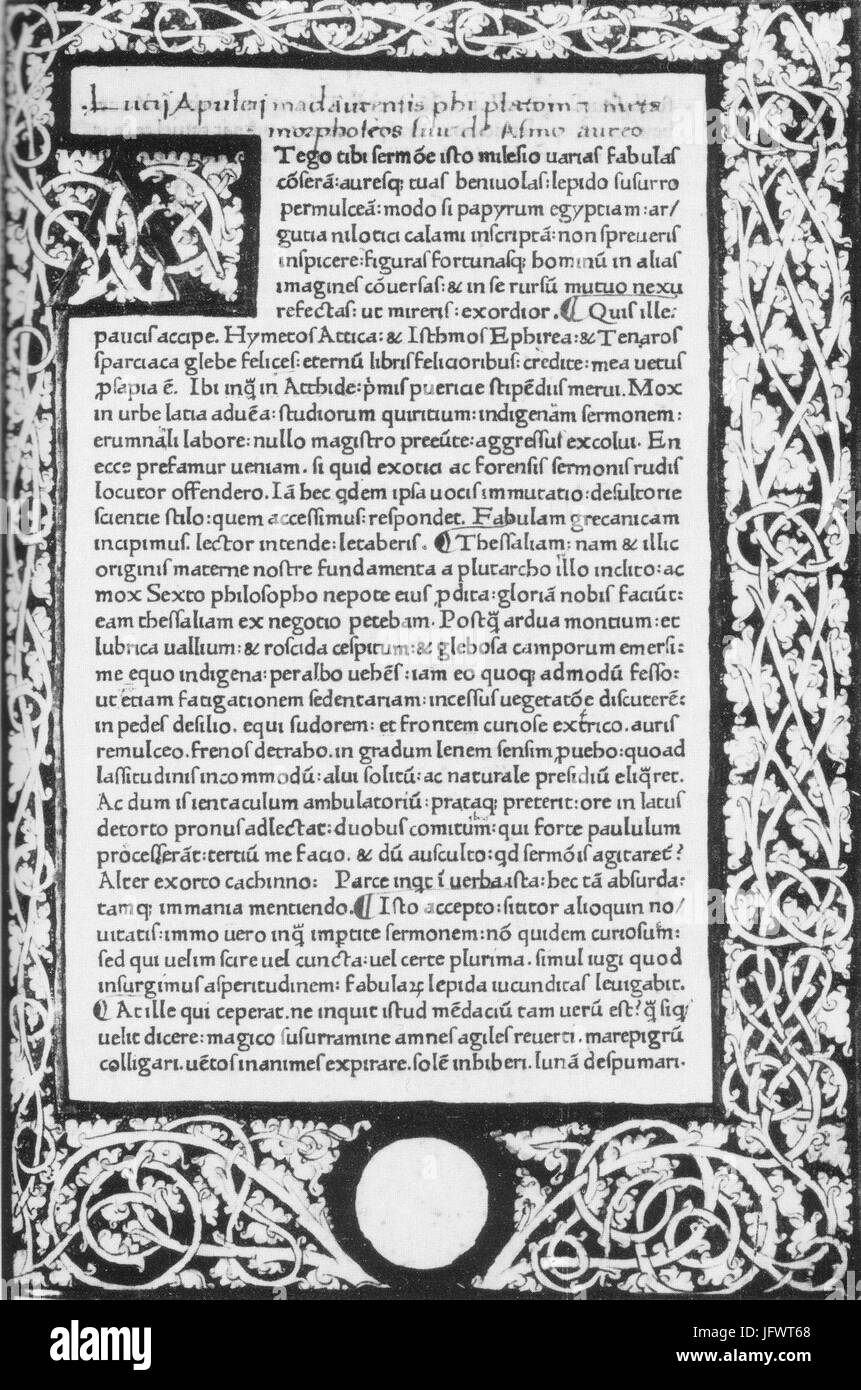 Lucij Apuleij madaurensis phi platonici meta
morphoseos siue de Asino aureo
A
Tego tibi sermōe isto milesio uarias fabulas
cōserā: auresq; tuas beniuolas: lepido susurro
permulceā: modo si papyrum egyptiam: ar/
gutia nilotici calami inscriptā: non spreueris
inspicere: figuras fortunasq; hominū in alias
imagines cōuersas: & in se rursū mutuo nexu
refectas: ut mireris: exordior. ¶ Quis ille:
paucis accipe. Hymetos Attica: & Isthmos Ephirea: & Tenaros
sparciaca glebe felices: eternū libris felicioribus: credite: mea uetus
ꝓsapia ē. Ibi inq̄ in Atthide: p̄mis puericie stipēdiis merui. Mox
in urbe latia aduēa: studiorum quiritium: indigenam sermonem:
erumnāli labore: nullo magistro preeūte: aggressus excolui. En
ecce prefamur ueniam. si quid exotici ac forensis sermonis rudis
locutor offendero. Iā hec qdem ipsa uocis immutatio: desultorie
scientie stilo: quem accessimus: respondet. Fabulam grecanicam
incipimus. lector intende: letaberis. ¶ Thessaliam: nam & illic
originis materne nostre fundamenta a plutarcho illo inclito: ac
mox Sexto philosopho nepote eius ꝓdita: gloriā nobis faciūt:
eam thessaliam ex negotio petebam. Postq̄ ardua montium: et
lubrica uallium: & roscida cespitum: & glebosa camporum emersi:
me equo indigena: peralbo uehēs: iam eo quoq; admodū fesso:
ut etiam fatigationem sedentariam: incessus uegetatōe discuterē:
in pedes desilio. equi sudorem: et frontem curiose extrico. auris
remulceo. frenos detraho. in gradum lenem sensim ꝓueho: quoad
lassitudinis incommodū: alui solitū: ac naturale presidiū eliq̄ret.
Ac dum is ientaculum ambulatoriū: prataq; preterit: ore in latus
detorto pronus adlectat: duobus comitum: qui forte paululum
processerāt: tertiū me facio. & dū ausculto: qd sermōis agitaret?
Alter exorto cachinno: Parce inqt ī uerba ista: hec tā absurda:
tamq; immania mentiendo. ¶ Isto accepto: sititor alioquin no/
uitatis: immo uero inq̄ impertite sermonem: nō quidem curiosum:
sed qui uelim scire uel cuncta: uel certe plurima. simul iugi quod
insurgimus asperitudinem: fabulaꝝ lepida iucunditas leuigabit.
¶ At ille qui ceperat. ne inquit istud mēdaciū tam uerū est? q̄ siq;
uelit dicere: magico susurramine amnes agiles reuerti. mare pigrū
colligari. uētos inanimes expirare. solē inhiberi. lunā despumari.
alamy
Image ID: JFWT68
www.alamy.com